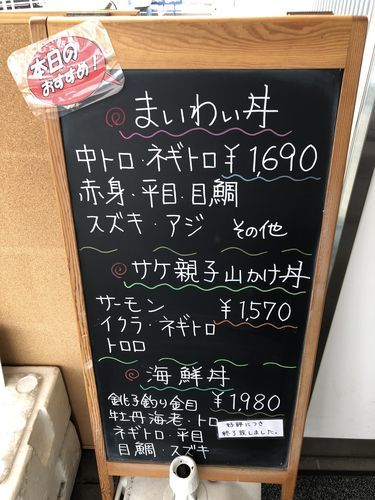 本日の
おすすめ!
まいわい丼
中トロ・ネギトロ ¥1,690
赤身・平目・目鯛
スズキ・アジ その他
サケ親子山かけ丼
サーモン ¥1,570
イクラ・ネギトロ
トロロ
海鮮丼
銚子釣り金目 ¥1,980
牡丹海老・トロ
ネギトロ・平目
目鯛・スズキ
好評につき
終了致しました。